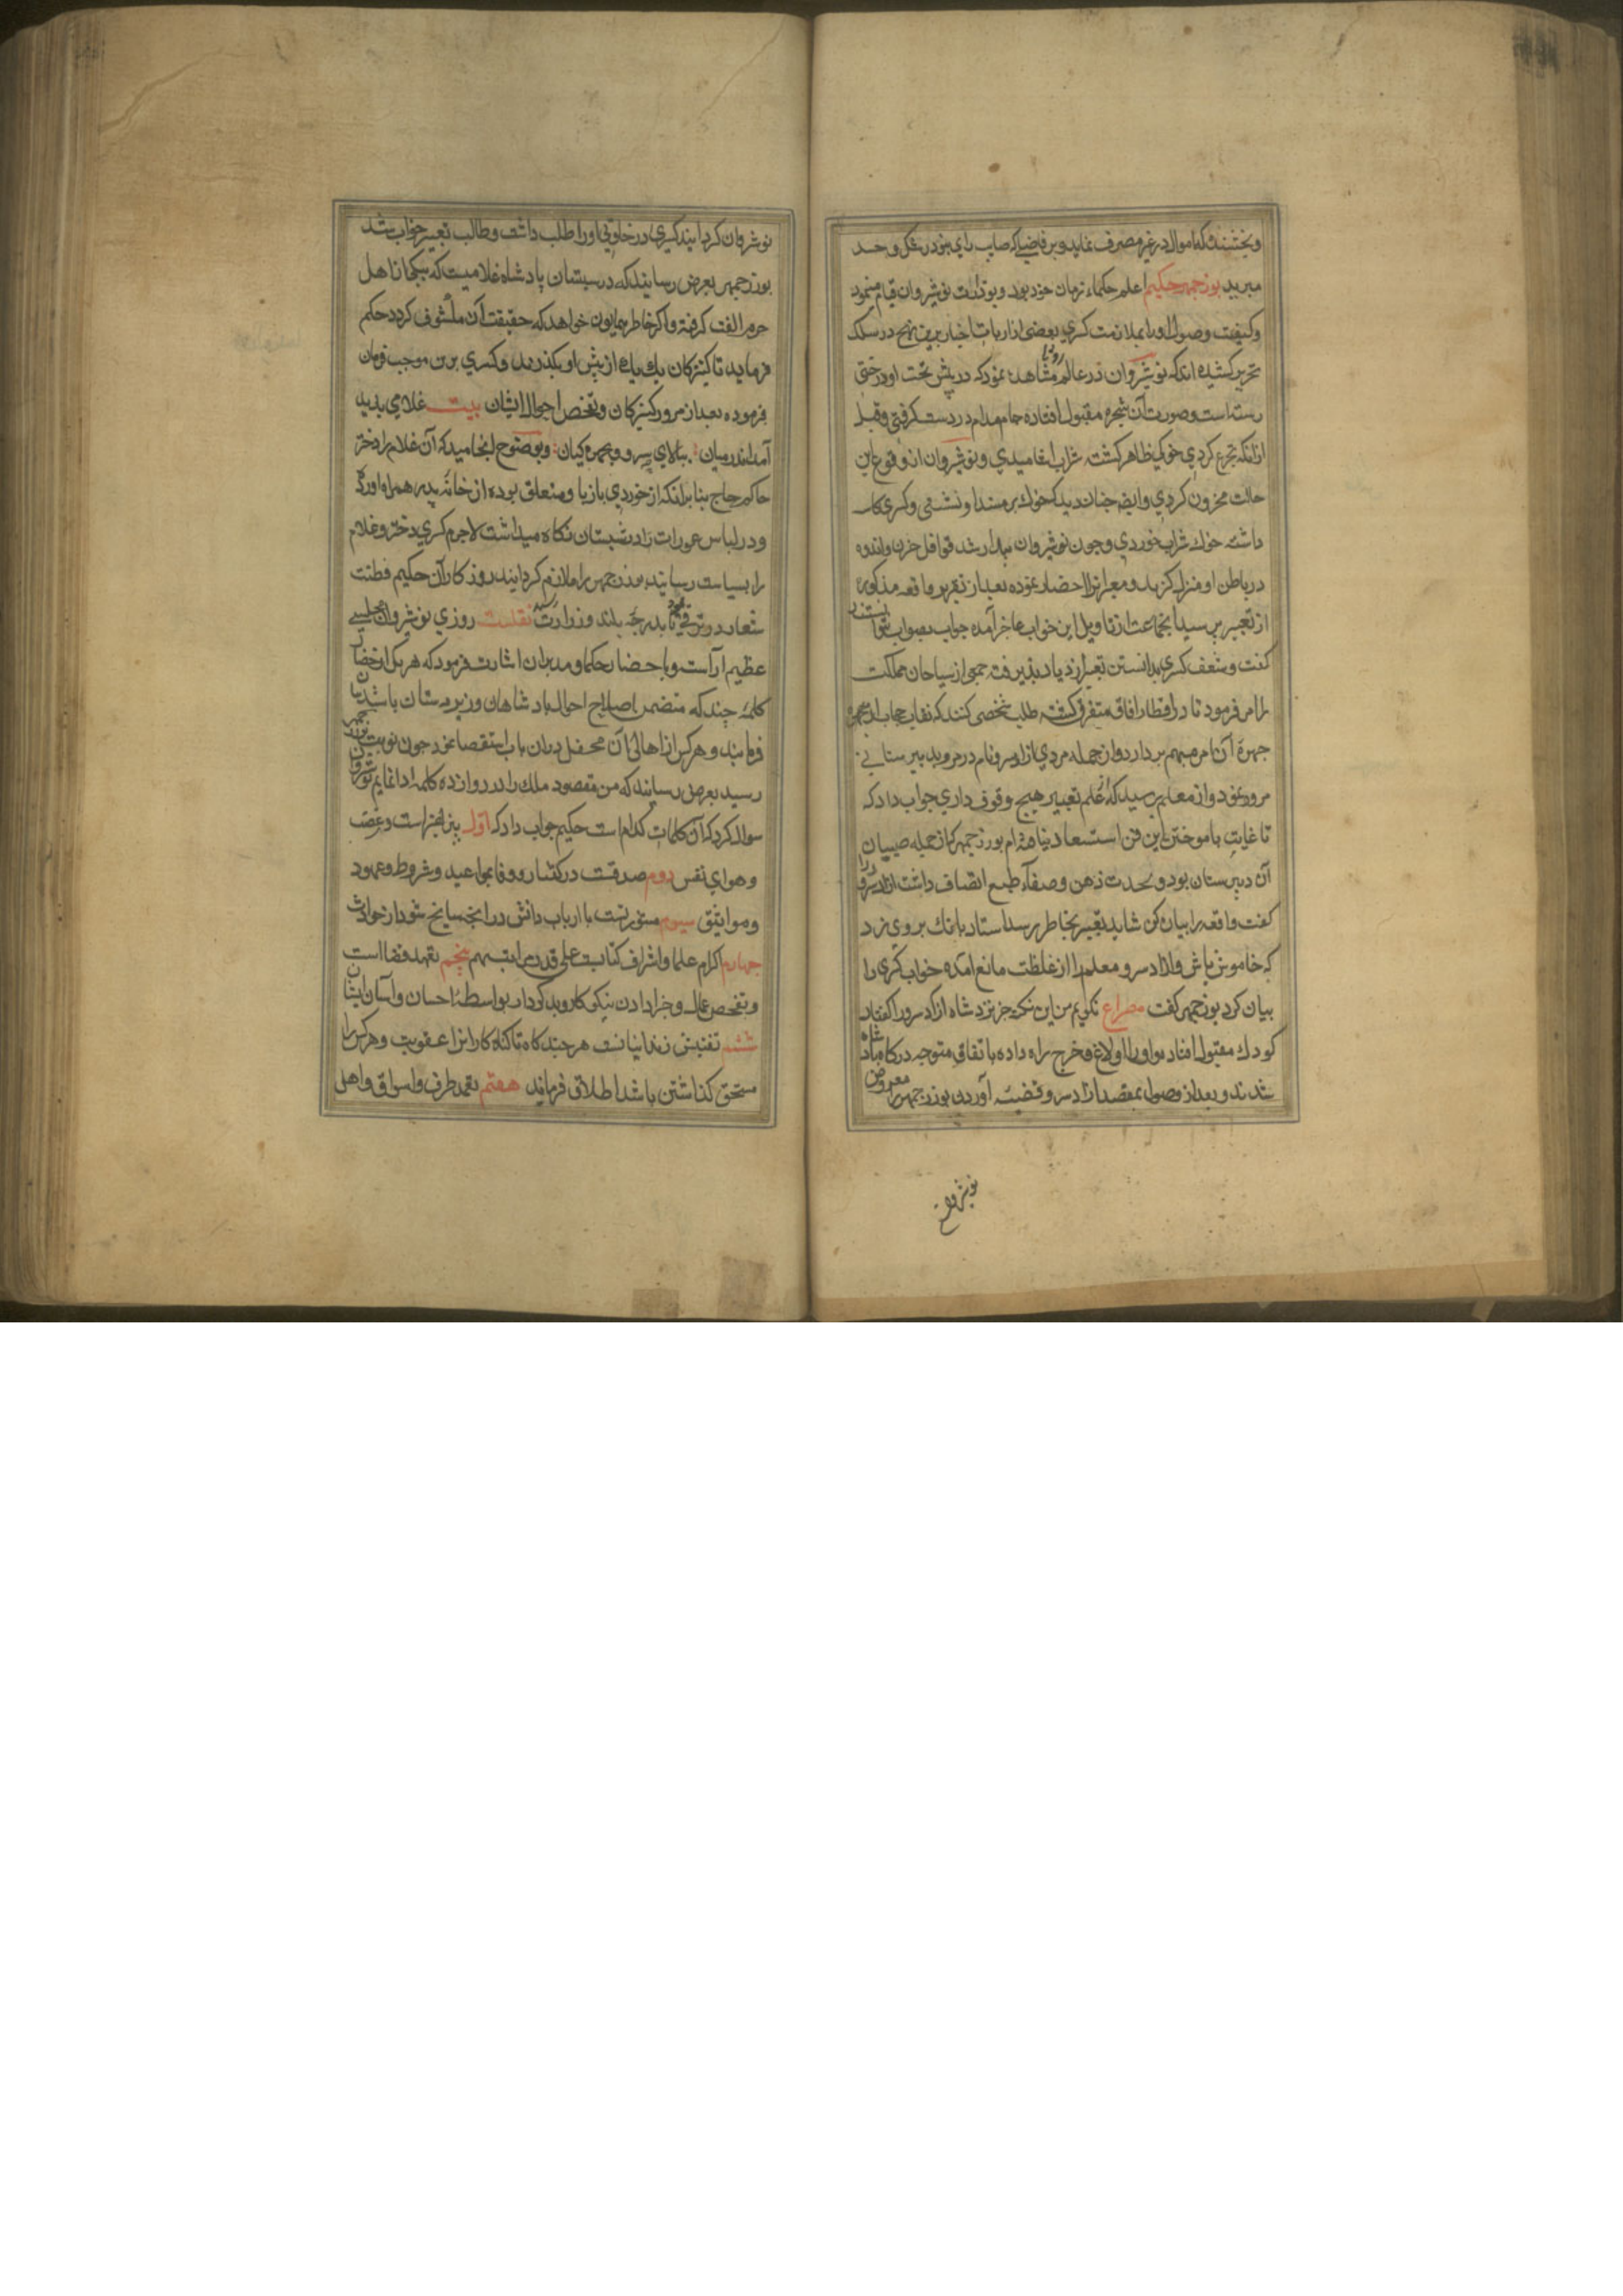 وبخشنده که اموال در غیر مصرف نماید و بر قاضیی که صاب رای بود رشک و حسد
میبرید بوزجمهر حکیم اعلم حکماء زمان خود بود و بوزارت نوشیروان قیام مینمود
وکیفیت وصول او را بملازمت کسری بعضی از ارباب اخبار برین نهج در سلک
تحریر کشیده اند که نوشیروان در عالم رویا مشاهده نمود که در پیش تخت او درختی
رسته است و صورت آن شجره مقبول افتاده جام مدام در دست گرفتی و قبل
از آنکه تجرع کردی خوکی ظاهر گشته شراب اشامیدی و نوشیروان از وقوع این
حالت محزون کردی وایضا چنان دید که خوک بر مسند او نشستی و کسری کاسه
داشته خوک شراب خوردی و چون نوشیروان بیدار شد قوافل حزن و اندوه
در باطن او منزل گزید و معبرانرا احضار نموده بعد از تقریر واقعه مذکوره
از تعبیر پرسید انجماعت از تاویل این خواب عاجز آمده جواب بصواب نتوانستند
گفت و شعف کسری بدانستن تعبیر ازدیاد پذیرفته جمعی از سیاحان مملکت
را امر فرمود تا در اقطار افاق متفرق گشته طلب شخصی کنند که نقاب حجاب از چهره
چهره آن امر مبهم بردارد و از جمله مردی ازادسرو نام در مرو بدبیرستانی
مرور نمود و از معلم پرسید که از علم تعبیر هیچ وقوف داری جواب داد که
تا غایت باموختن این فن استسعاد نیافته ام بوزرجمهر که از جمله صبیان
آن دبیرستان بود و بحدت ذهن و صفاء طبع اتصاف داشت ازادسرو را
گفت واقعه را بیان کن شاید تعبیر بخاطر رسد استاد بانک بر وی زد
که خاموش باش و ازادسرو معلم را از غلظت مانع آمده خواب کسری را
بیان کرد بوزجمهر گفت مصراع نگویم من این نکته جز نزد شاه ازادسرو را گفتار
کودک مقبول افتاد و او را اولاغ و خرج راه داده باتفاق متوجه درگاه پادشاه
شدند و بعد از وصول بمقصد ازادسرو قضیه آوردن بوزرجمهر را معروض
نوشیروان
نوشروان گردانید کسری در خلوتی او را طلب داشت و طالب تعبیر خواب شد
بوزرجمهر بعرض رسانید که در سبستان پادشاه غلامیست که بیکی از اهل
حرم الفت گرفته و اگر خاطر همایون خواهد که حقیقت آن مکشوف گردد حکم
فرماید تا کنیزکان یک یک از پیش او بگذرند و کسری برین موجب فرمان
فرموده بعد از مرور کنیزکان و تفحص احوال ایشان بیت غلامی پدید
آمد اندر میان ببالای سرو و بچهره کیان وبوضوح انجامید که آن غلام را دختر
حاکم چاچ بنا بر آنکه از خوردی باز با او متعلق بوده از خانه پدر همراه آورد
و در لباس عورات در شبستان نگاه میداشت لاجرم کسری دختر و غلام
را بسیاست رسانیده بوزرجمهر را ملازم گردانید روزگار آن حکیم فطنت
شعار در ترقی بود تا بدرجه بلند وزارت رسید نقلست روزی نوشروان مجلسی
عظیم آراست و باحضار حکما و مدبران اشارت فرمود که هر یک از حضار
کلمه چند که متضمن اصلاح احوال پادشاهان و زیردستان باشد بیان
فرمایند و هر کس از اهالی آن محفل در آن باب استقصا نمود چون نوبت بوزرجمهر
رسید بعرض رسانید که من مقصود ملک را در دوازده کلمه ادا نمایم نوشروان
سوال کرد که آن کلمات کدام است حکیم جواب داد که اول پرهیز است و غضب
و هوای نفس دوم صدقست در گفتار و وفا بمواعید و شروط و عهود
و مواثیق سیوم مشورتست با ارباب دانش در انچه سانح شود از حوادث
چهارم اکرام علما و اشراف کتابت علی قدر مراتبهم پنجم تعهد قضااست
و تفحص عمال و جزا دادن نیکوکار و بدکردار بواسطه احسان و اسآت ایشان
ششم تفتیش زندانیانست هر چند گاه تا گناه کارانرا عقوبت و هر کس را
مستحق گذاشتن باشد اطلاق فرماید هفتم تعهد طرف و اسواق و اهل